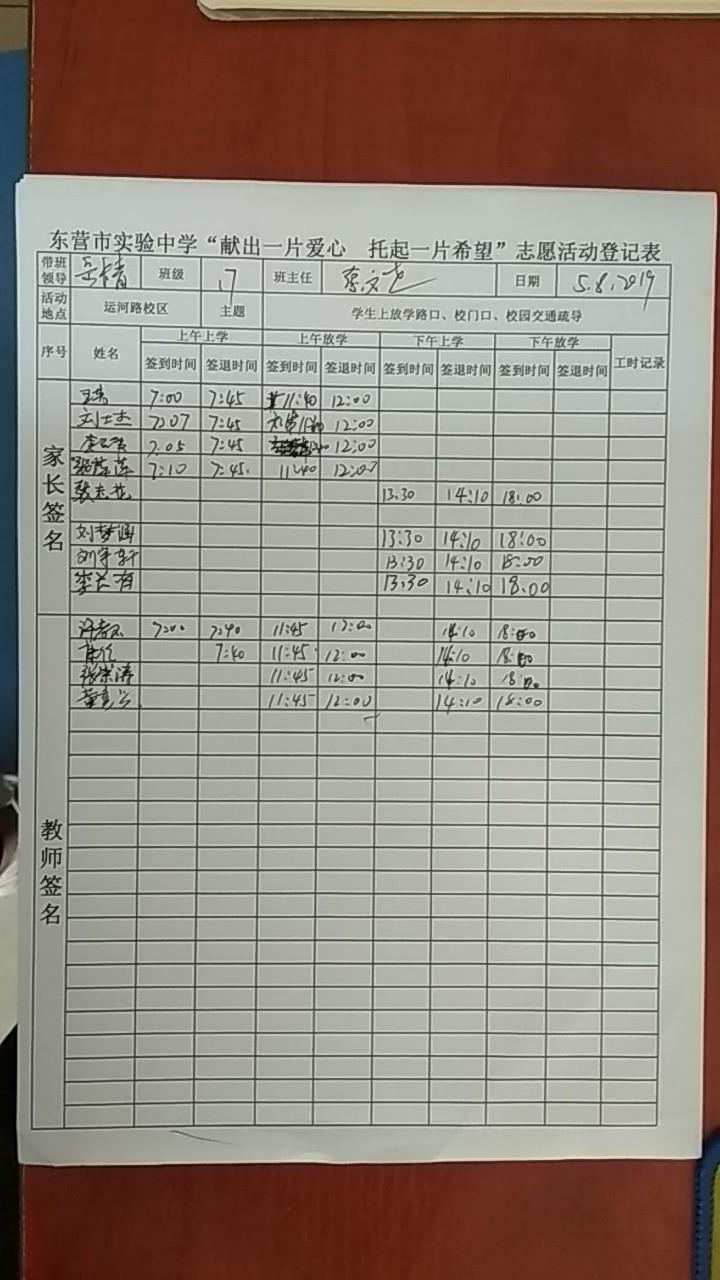 东营市实验中学“献出一片爱心 托起一片希望”志愿活动登记表
带班领导 班级 班主任 日期 5.8.2019
活动地点 运河路校区 主题 学生上放学路口、校门口、校园交通疏导
序号 姓名 上午上学 上午放学 下午上学 下午放学 工时记录
签到时间 签退时间 签到时间 签退时间 签到时间 签退时间 签到时间 签退时间
家长签名
7:00 7:45 11:40 12:00
刘士杰 7:07 7:45 12:00
7:05 7:45 12:00
7:10 7:45. 11:40 12:00
张志花 13.30 14:10 18:00
刘梦涵 13:30 14:10 18:00
刘宇轩 13:30 14:10 18:00
李长有 13:30 14:10 18.00
教师签名
7:40 11:45 12:00 14:10 18:00
7:40 11:45 12:00 14:10 18:00
张宗涛 11:45 12:00 14:10 18:00
11:45 12:00 14:10 18:00